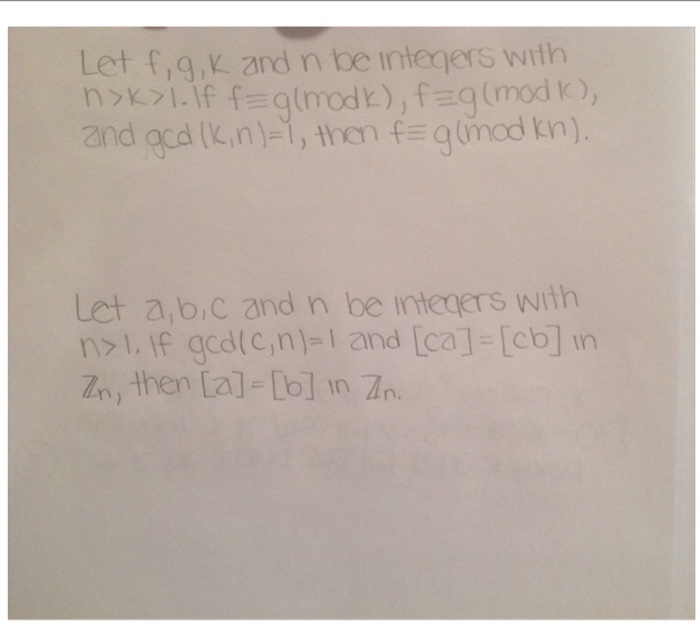 Let f,g,k and n be integers with
n>k>1. If f≡g(modk), f≡g(modk),
and gcd(k,n)=1, then f≡g(mod kn).
Let a,b,c and n be integers with
n>1. If gcd(c,n)=1 and [ca]=[cb] in
ℤn, then [a]=[b] in ℤn.